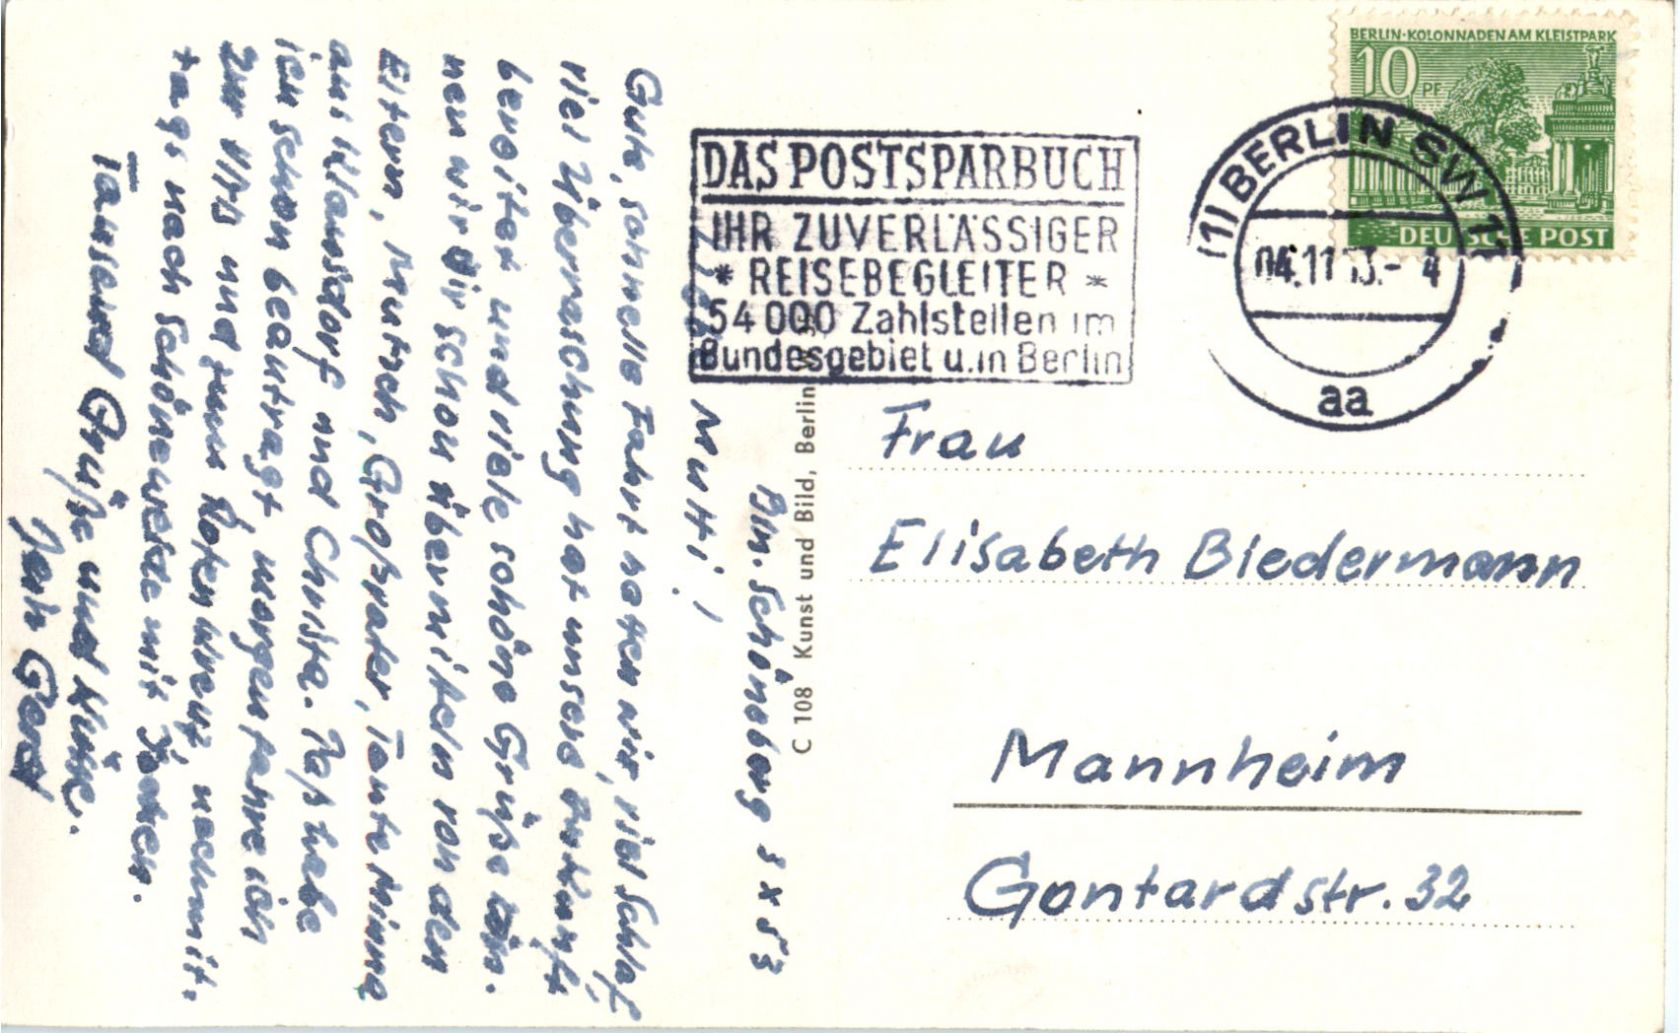 BERLIN·KOLONNADEN AM KLEISTPARK
10 PF
DEUTSCHE POST
(1) BERLIN SW 11
04.11.53.- 4
aa
DAS POSTSPARBUCH
IHR ZUVERLÄSSIGER
* REISEBEGLEITER *
54 000 Zahlstellen im
Bundesgebiet u. in Berlin
C 108 Kunst und Bild, Berlin
Bln. Schöneberg 3 X 53
Mutti!
Gute, schnelle Fahrt hatten wir, viel Schlaf,
viel Überraschung hat unsere Ankunft
bereitet und viele schöne Grüße
nen wir Dir schon übermitteln von den
Eltern, Mutsch, Großvater, Tante Minna
aus Klausdorf und Christa. Paß habe
ich schon beantragt, morgen fahre ich
zur und zum Roten Kreuz, nachmit-
tags nach Schöneweide mit
Tausend Grüße und Küsse.
Dein Gerd
Frau
Elisabeth Biedermann
Mannheim
Gontardstr. 32